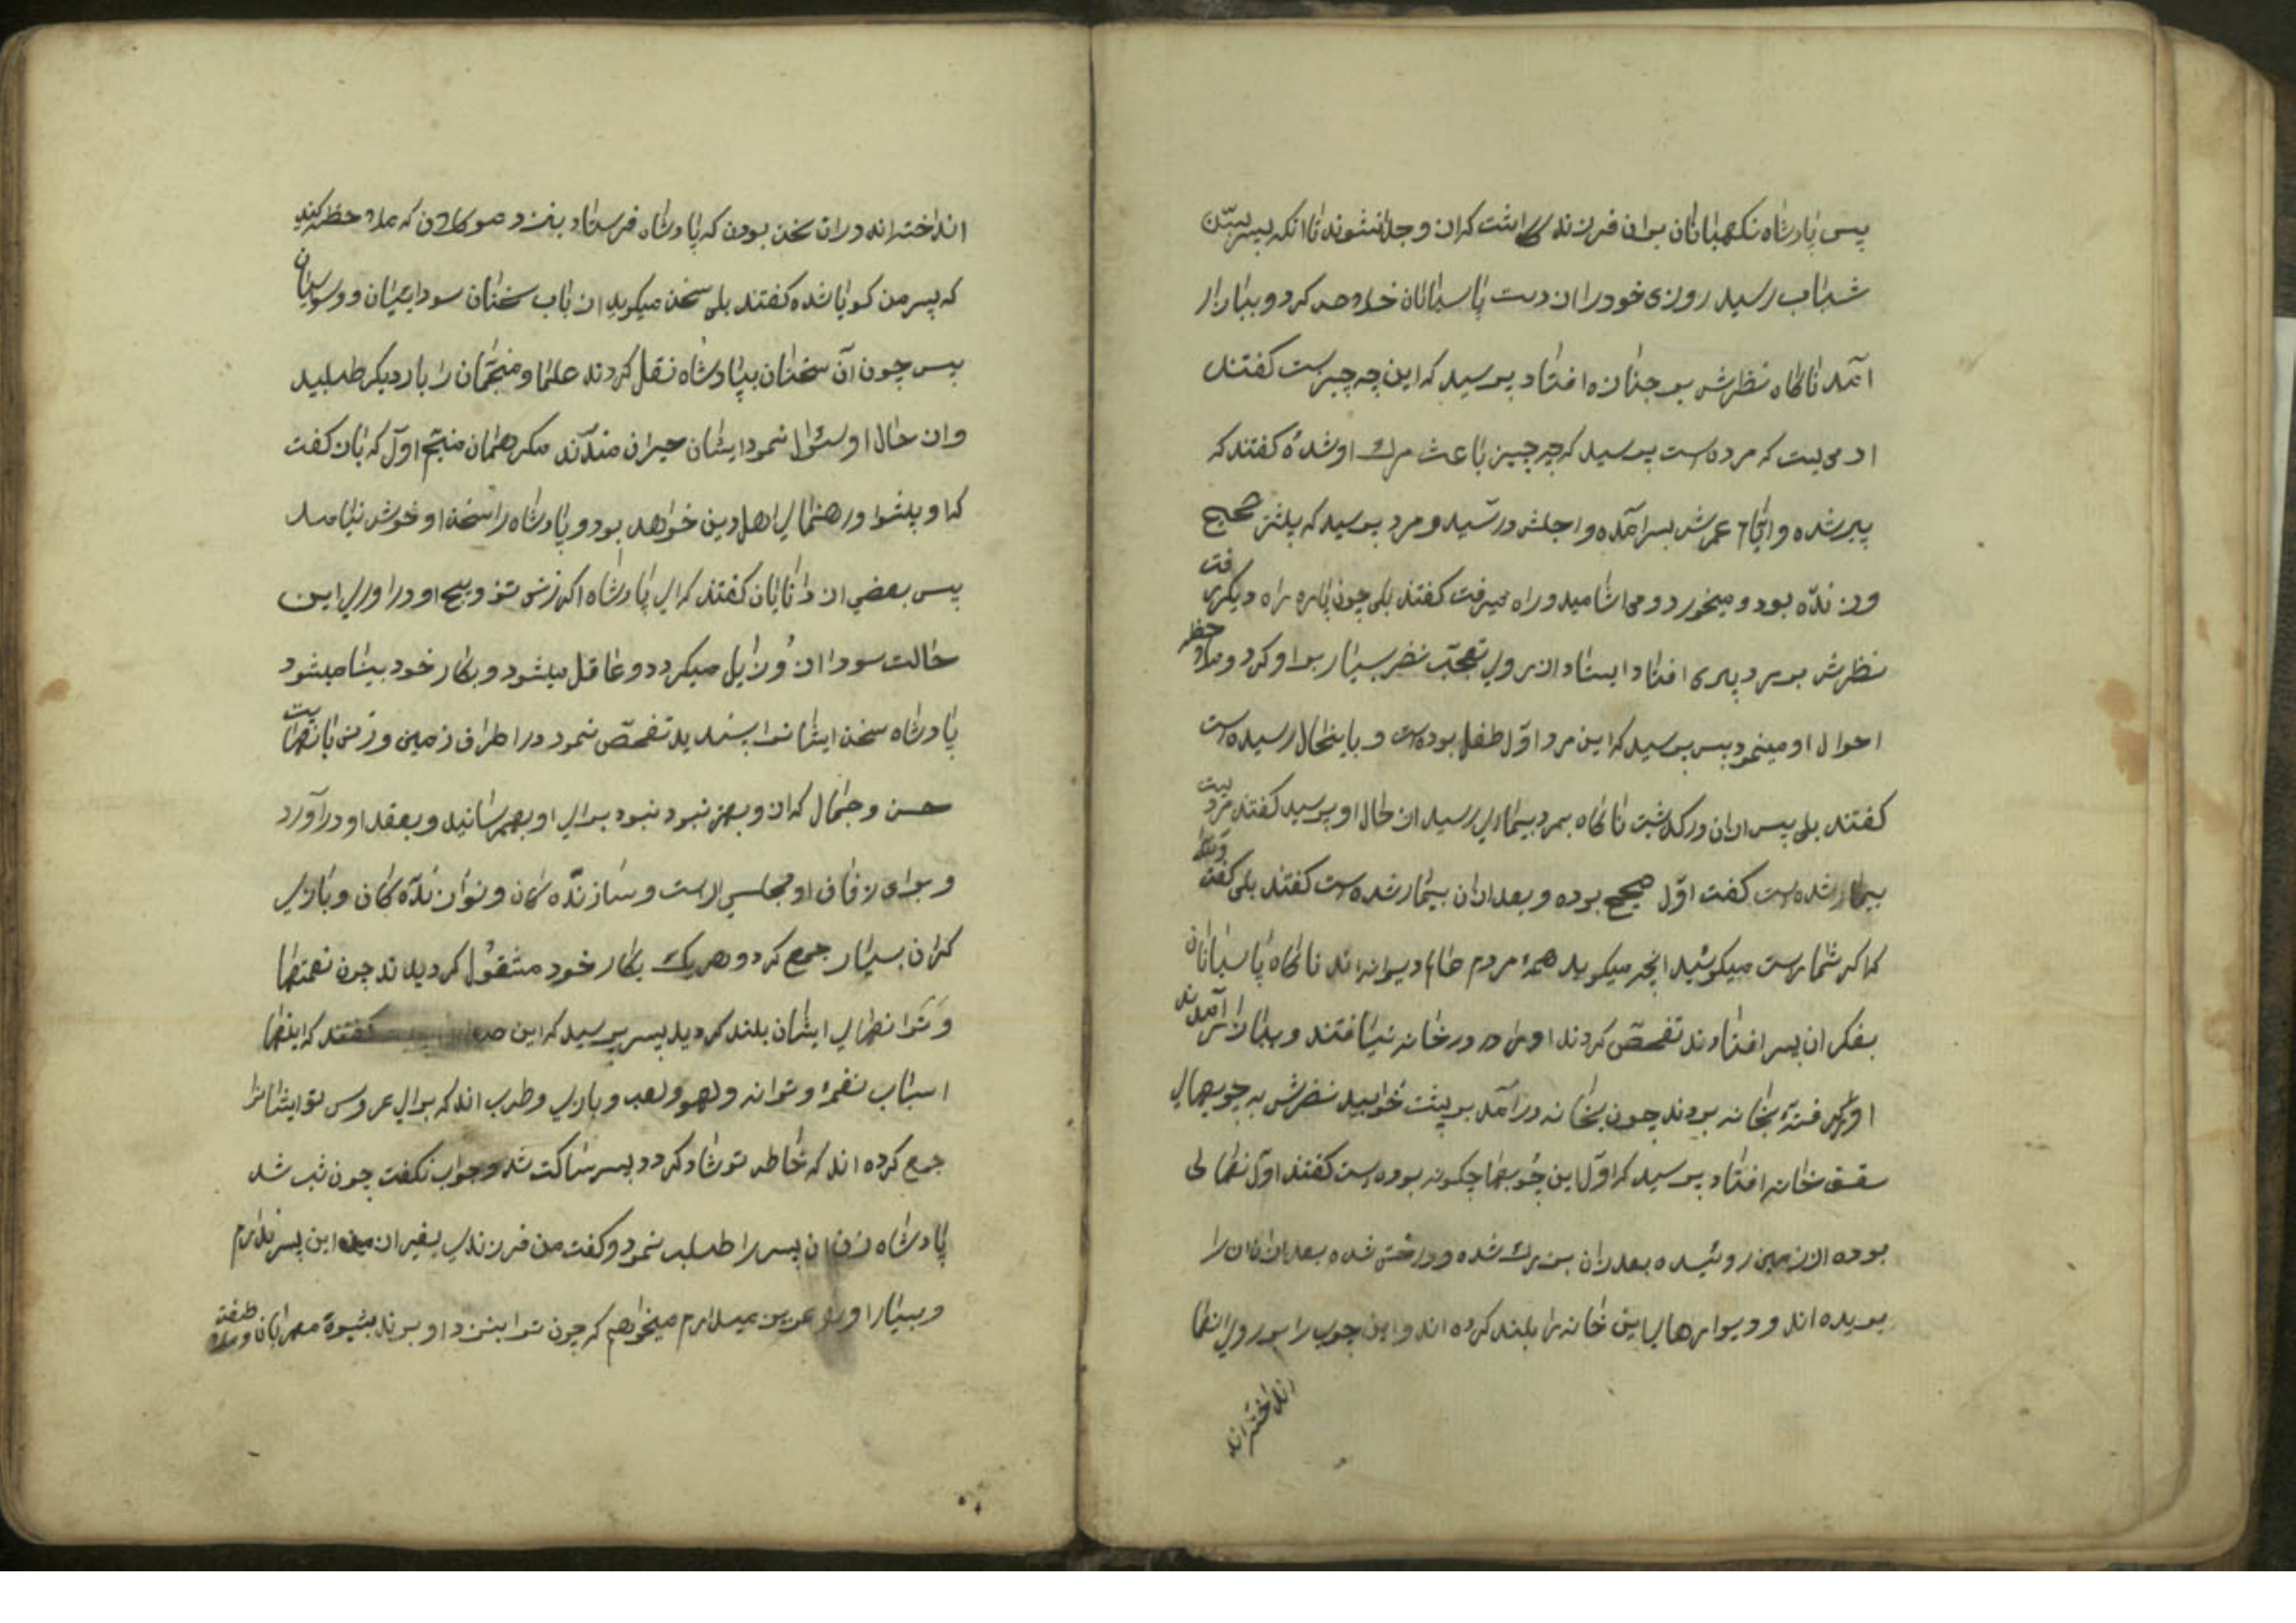 پس پادشاه نکهبانان بران فرزند کماشت که ازو جدا نشوند تا انکه پسر بسن
شباب رسید روزی خود را از دست پاسبانان خلاص کرد و ببازار
آمد ناکاه نظرش بر جنازه افتاد پرسید که این چه چیزست کفتند
ادمیست که مرده است پرسید که چه چیز باعث مرک او شده کفتند که
پیر شده و ایام عمرش بسر آمده و اجلش در رسیده و مرد پرسید که پیشتر صحیح
و زنده بود و میخورد و می اشامید و راه میرفت کفتند بلی چون پاره راه دیکر رفت
نظرش بر مرد پیری افتاد ایستاد از روی تعجب نظر بسیار بر او کرد و ملاحظه
احوال او مینمود پس پرسید که این مرد اول طفل بوده است و باینحال رسیده است
کفتند بلی پس از ان در کذشت ناکاه بمرد بیماری رسید از حال او پرسید کفتند مردیست
بیمار شده است کفت اول صحیح بوده و بعد از ان بیمار شده است کفتند بلی کفت
که اکر شما راست میکوئید انچه میکوید همه مردم عالم دیوانه اند ناکاه پاسبانان
بفکر ان پسر افتادند تفحص کردند او را در خانه نیافتند و ببازار آمدند
او را کرفته بخانه بردند چون بخانه در آمد بر پشت خوابید نظرش به چوبهای
سقف خانه افتاد پرسید که اول این چوبها چکونه بوده است کفتند اول نهالی
بوده از زمین روئیده بعد از ان بزرک شده و درختی شده بعد از ان ان را
بریده اند و دیوارهای این خانه را بلند کرده اند و این چوب را بر روی انها
انداخته اند
انداخته اند در ان سخن بودن که پادشاه فرستاد بنزد موکلان که ملاحظه کنید
که پسر من کویا شده کفتند بلی سخن میکوید از باب سخنان سودائیان و وسواسیان
پس چون آن سخنان بپادشاه نقل کردند علما و منجمان را بار دیکر طلبید
و از حال او سئوال نمود ایشان حیران مندند مکر همان منجم اول که بان کفت
که او پیشوا و رهنمای اهل دین خواهد بود و پادشاه را سخن او خوش نیامد
پس بعضی از دانایان کفتند که ای پادشاه اکر زنش تزویج او در اوری این
حالت سودا از و زایل میکردد و عاقل میشود و بکار خود بینا میشود
پادشاه سخن ایشانرا پسندید تفحص نمود در اطراف زمین و زنی بانهایت
حسن و جمال که ازو بهتر نبود نبود برای او بهم رسانید و بعقد او در آورد
و برای زفاف او مجلسی اراست و سازنده کان و نوازنده کان و بازی
کران بسیار جمع کرد و هریک بکار خود مشغول کردیدند چون نغمتها
و ترانهای ایشان بلند کردید پسر پرسید که این کفتند که اینها
اسباب نغمه و ترانه و لهو و لعب و بازی و طرب اند که برای عروس تو ایشانرا
جمع کرده اند که خاطر تو شاد کردد پسر ساکت شد و جواب نکفت چون شب شد
پادشاه زن ان پسر را طلب نمود و کفت من فرزندی بغیر از این پسر ندارم
و بسیار او را عزیز میدارم میخواهم که چون ترا بنزد او برند بشیوه مهربانان و ملاطفت